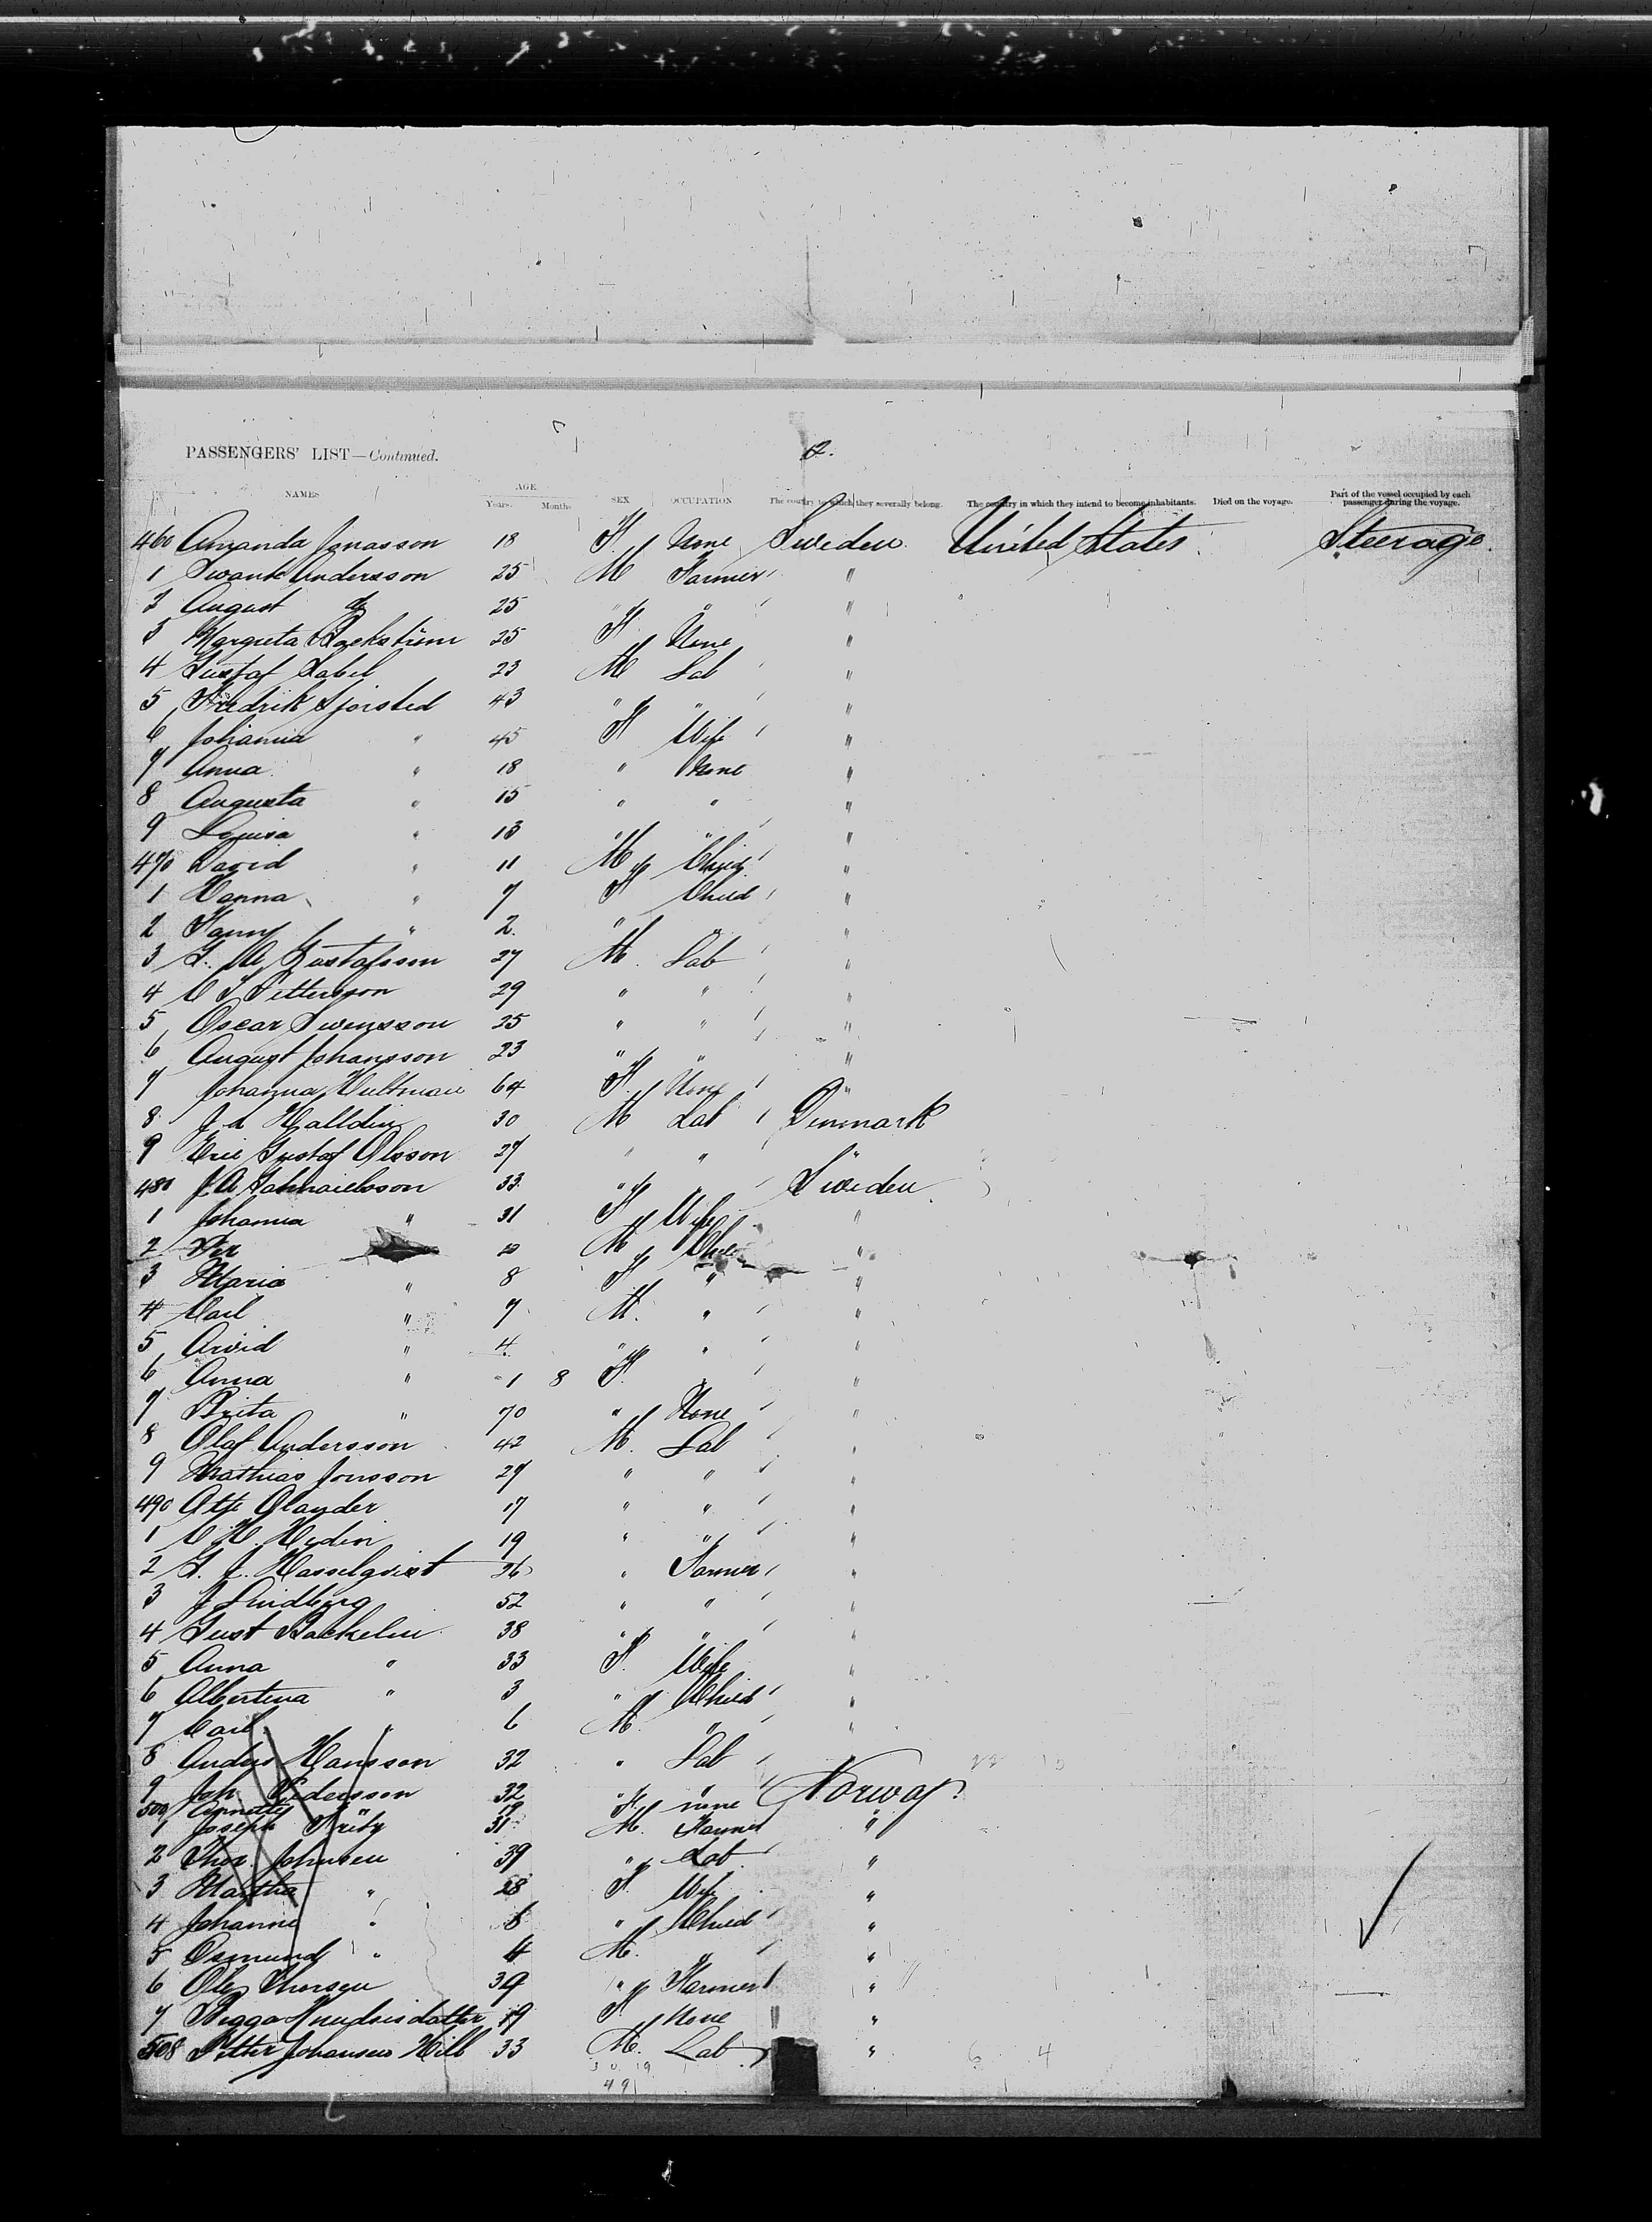 PASSENGERS' LIST—Continued.
12.
NAMES AGE Years. Months SEX OCCUPATION The country to which they severally belong. The country in which they intend to become inhabitants. Died on the voyage. Part of the vessel occupied by each passenger during the voyage.
460 Amanda Jonasson 18 F None Sweden United States Steerage
1 Swante Andersson 25 M Farmer "
2 August do 25 " " "
3 Margreta Backström 25 F None "
4 Gustaf Sabel 23 M Lab "
5 Fredrik Sjorsted 43 " " "
6 Johanna " 45 F Wife "
7 Anna " 18 " None "
8 Augusta " 15 " " "
9 Lovisa " 13 " " "
470 David " 11 M Child "
1 Hanna " 7 F Child "
2 Fanny " 2 " " "
3 Gustafsson 27 M Lab "
4 Pettersson 29 " " "
5 Oscar Swensson 25 " " "
6 August Johansson 23 " " "
7 Johanna Hultman 64 F None "
8 Halldin 30 M Lab Denmark
9 Eric Gustaf Olsson 27 " " "
480 J A 33 " " Sweden
1 Johanna " 31 F Wife "
2 Per 10 M Child "
3 Maria " 8 F " "
4 Carl " 7 M " "
5 Arvid " 4 " " "
6 Anna " 1 8 F " "
7 Brita " 70 " None "
8 Olaf Andersson 42 M Lab "
9 Mathias Jonsson 27 " " "
490 Otto Olander 17 " " "
1 C H Hedin 19 " " "
2 Hasselqvist 26 " Farmer "
3 J Lindberg 52 " " "
4 Gust Backelin 38 " " "
5 Anna " 33 F Wife "
6 Albertina " 3 " Child "
7 Carl " 6 M " "
8 Anders Hansson 32 " Lab "
9 Joh Pedersson 32 " " Norway
500 19 F none
1 Joseph 31 M Farmer "
2 Thor Johnsen 39 " Lab "
3 Martha " 28 F Wife "
4 Johanne " 6 " Child "
5 Osmund " 4 M " "
6 Ole Thorsen 39 " Farmer "
7 Knudsdatter 19 F None "
508 Petter Johansen Hill 33 M Lab " 6 4
30 19
49